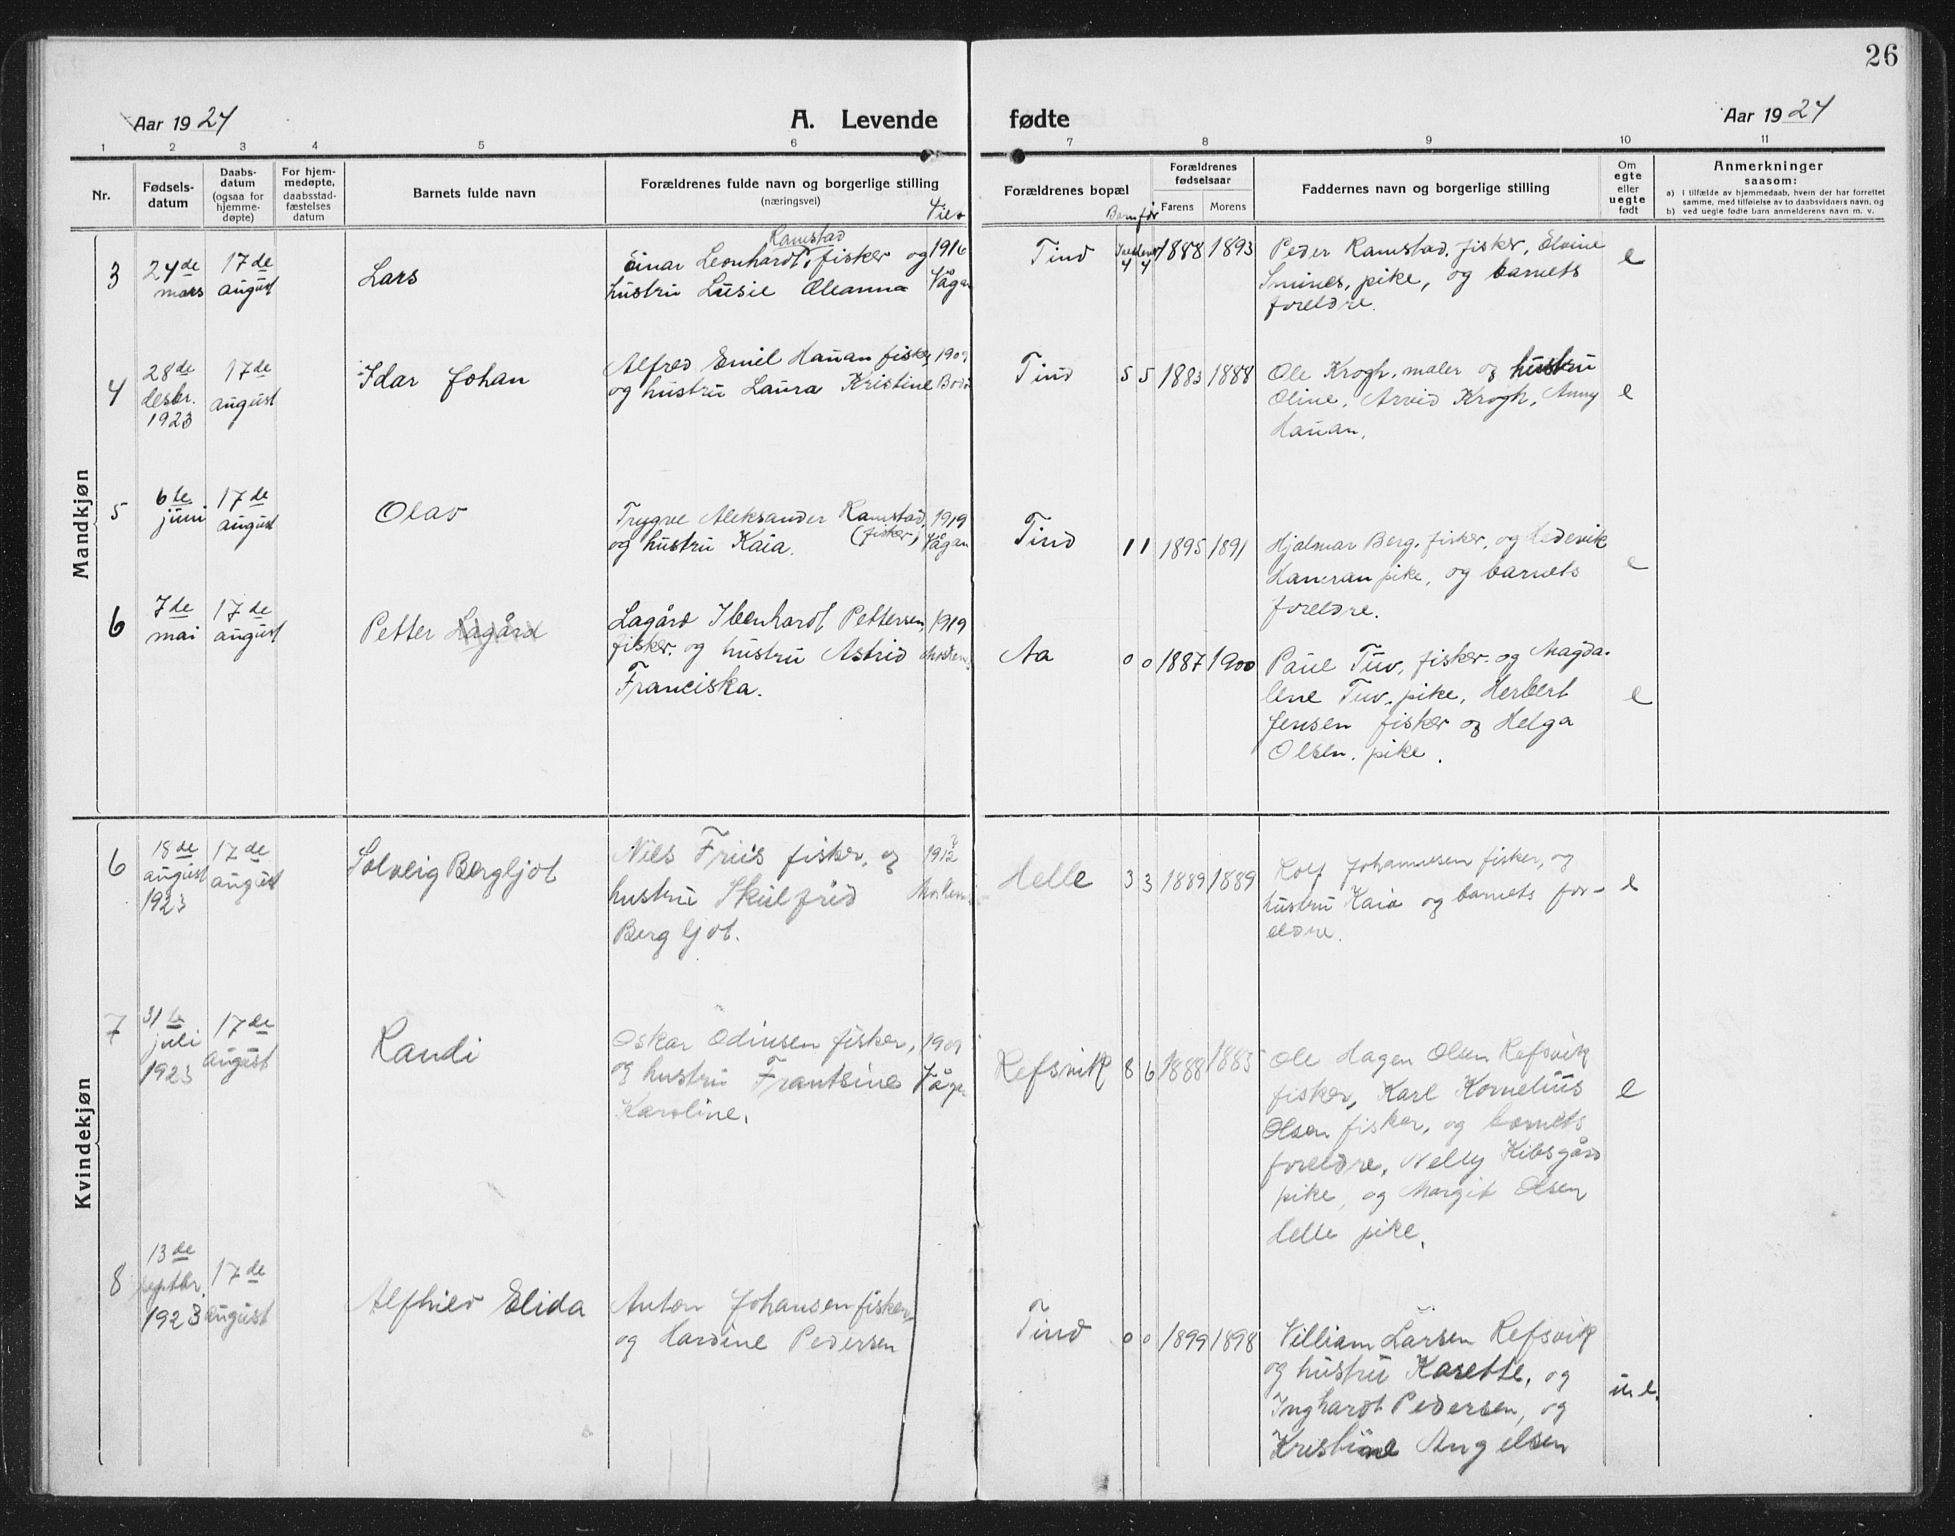 26
Aar 1924
A. Levende
fødte
Aar 1924
1 2 3 4 5 6 7 8 9 10 11
Nr.
Fødsels-
datum
Daabs-
datum
(ogsaa for
hjemme-
døpte)
For hjem-
medøpte,
daabsstad-
fæstelses
datum
Barnets fulde navn
Forældrenes fulde navn og borgerlige stilling
(næringsvei)
Forældrenes bopæl
Forældrenes
fødselsaar
Farens Morens
Faddernes navn og borgerlige stilling
Om
egte
eller
uegte
født
Anmerkninger
saasom:
a) I tilfælde av hjemmedaab, hvem der har forrettet
samme, med tilføielse av to daabsvidners navn, og
b) ved uegte fødte barn anmelderens navn m. v.
Barn før
Mandkjøn
3
24de
mars
17de
august
Lars
Ramstad
Einar Leonhardt, fisker og
hustru Lusie Oleanna
1916
Vågan
Tind
4 4
1888 1893
Peder Ramstad, fisker, Elvine
Smines, pike, og barnets
foreldre.
e
4
28de
desbr.
1923
17de
august
Idar Johan
Alfred Emil Hauan fisker
og hustru Laura Kristine
1909
Bodø
Tind
5 5
1883 1888
Ole Krogh, maler og hustru
Oline, Arvid Krogh, Anny
Hauan.
e
5
6te
juni
17de
august
Olav
Trygve Aleksander Ramstad,
(fisker)
og hustru Kaia.
1919
Vågan
Tind
1 1
1895 1891
Hjalmar Berg, fisker, og Hedevik
pike, og barnets
foreldre.
e
6
7de
mai
17de
august
Petter Lagård
Lagård Ibenhardt Pettersen,
fisker, og hustru Astrid
Franciska.
1919
Aa
0 0
1887 1900
Paul Tuv, fisker og Magda-
lene Tuv, pike, Herbert
Jensen fisker og Helga
Olsen, pike.
e
Kvindekjøn
6
18de
august
1923
17de
august
Solveig Bergljot
Nils Friis fisker, og
hustru Skulfrid
Bergljot.
1912
Helle
3 3
1889 1889
Rolf Johannesen fisker, og
hustru Kaia og barnets for-
eldre.
e
7
31te
juli
1923
17de
august
Randi
Oskar Odinsen fisker,
og hustru Frantsine
Karoline.
1909
Vågan
Refsvik
8 6
1888 1885
Ole Hagen Olsen Refsvik
fisker, Karl Kornelius
Olsen fisker, og barnets
foreldre, Nelly Kibsgård
pike, og Margit Olsen
Helle pike.
e
8
13de
septbr.
1923
17de
august
Alfhild Elida
Anton Johansen fisker,
og Hardine Pedersen
Tind
0 0
1899 1898
William Larsen Refsvik
og hustru Karette, og
Inghardt Pedersen, og
Kristine Angelsen
u.e.